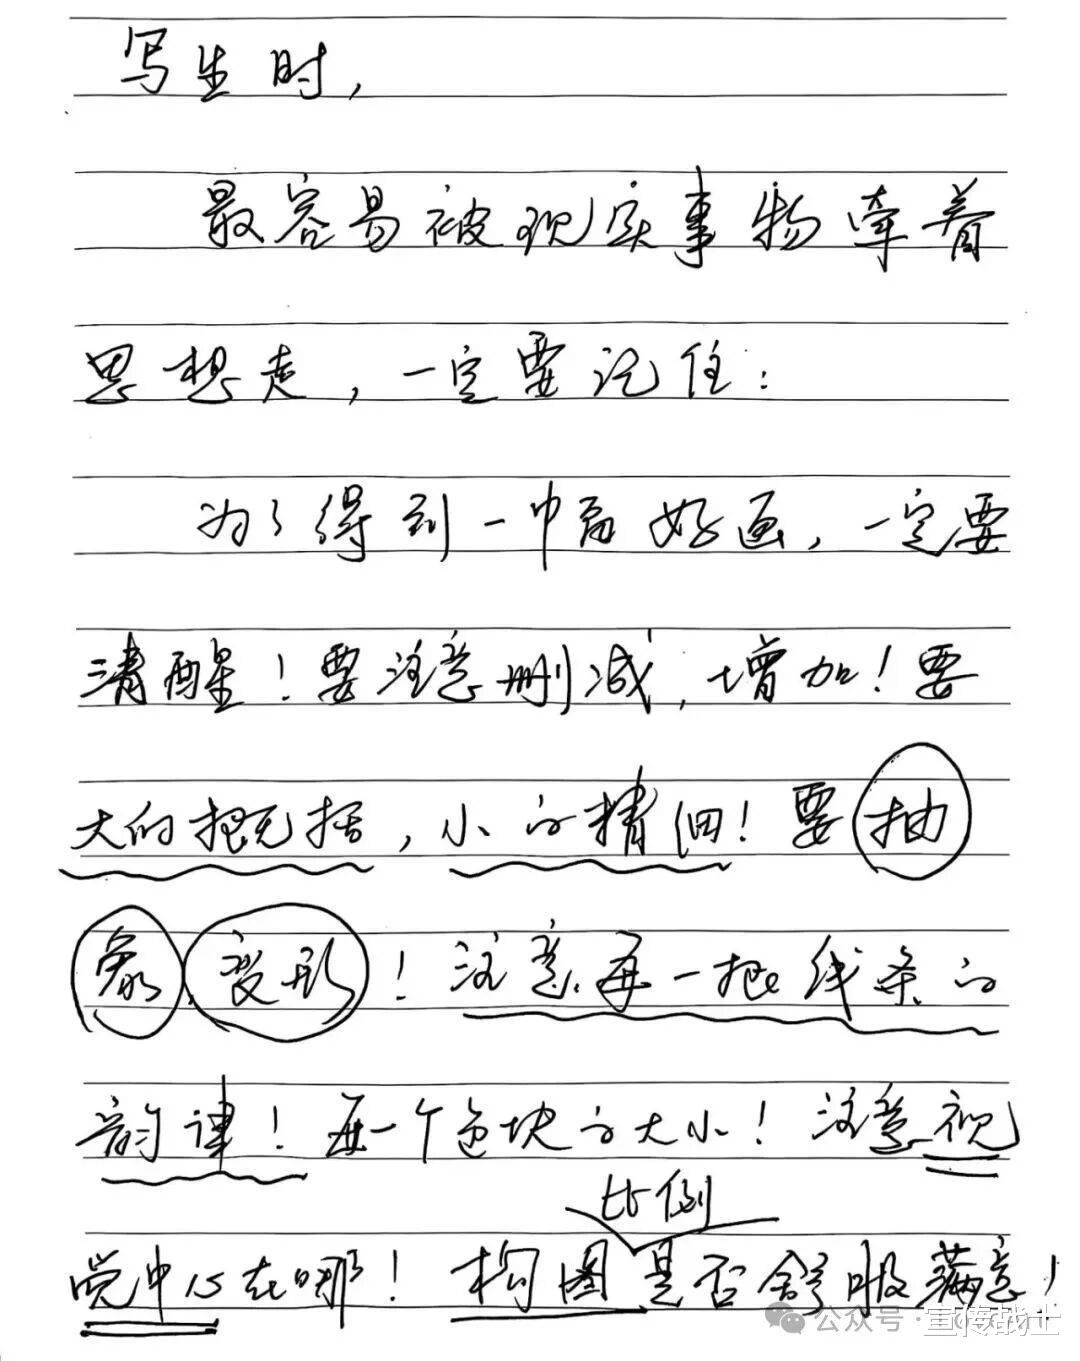 写生时，
最容易被现实事物牵着
思想走，一定要记住：
为了得到一幅好画，一定要
清醒！要注意删减，增加！要
大的概括，小的精细！要抽
象、变形！注意每一根线条的
韵律！每一个色块的大小！注意视
比例
觉中心在哪！构图是否舒服满意！
公众号·宣传战士